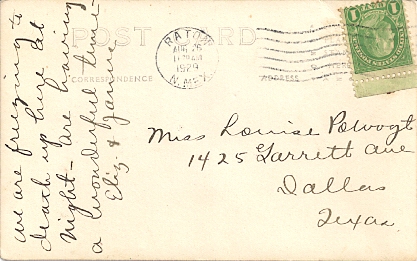 POST CARD
CORRESPONDENCE
ADDRESS
RATON
1929
N. MEX.
1
1
We are freezing to
death up here at
night - are having
a wonderful time -
Eliz. &
Miss Louise
1425 Garrett Ave
Dallas
Texas